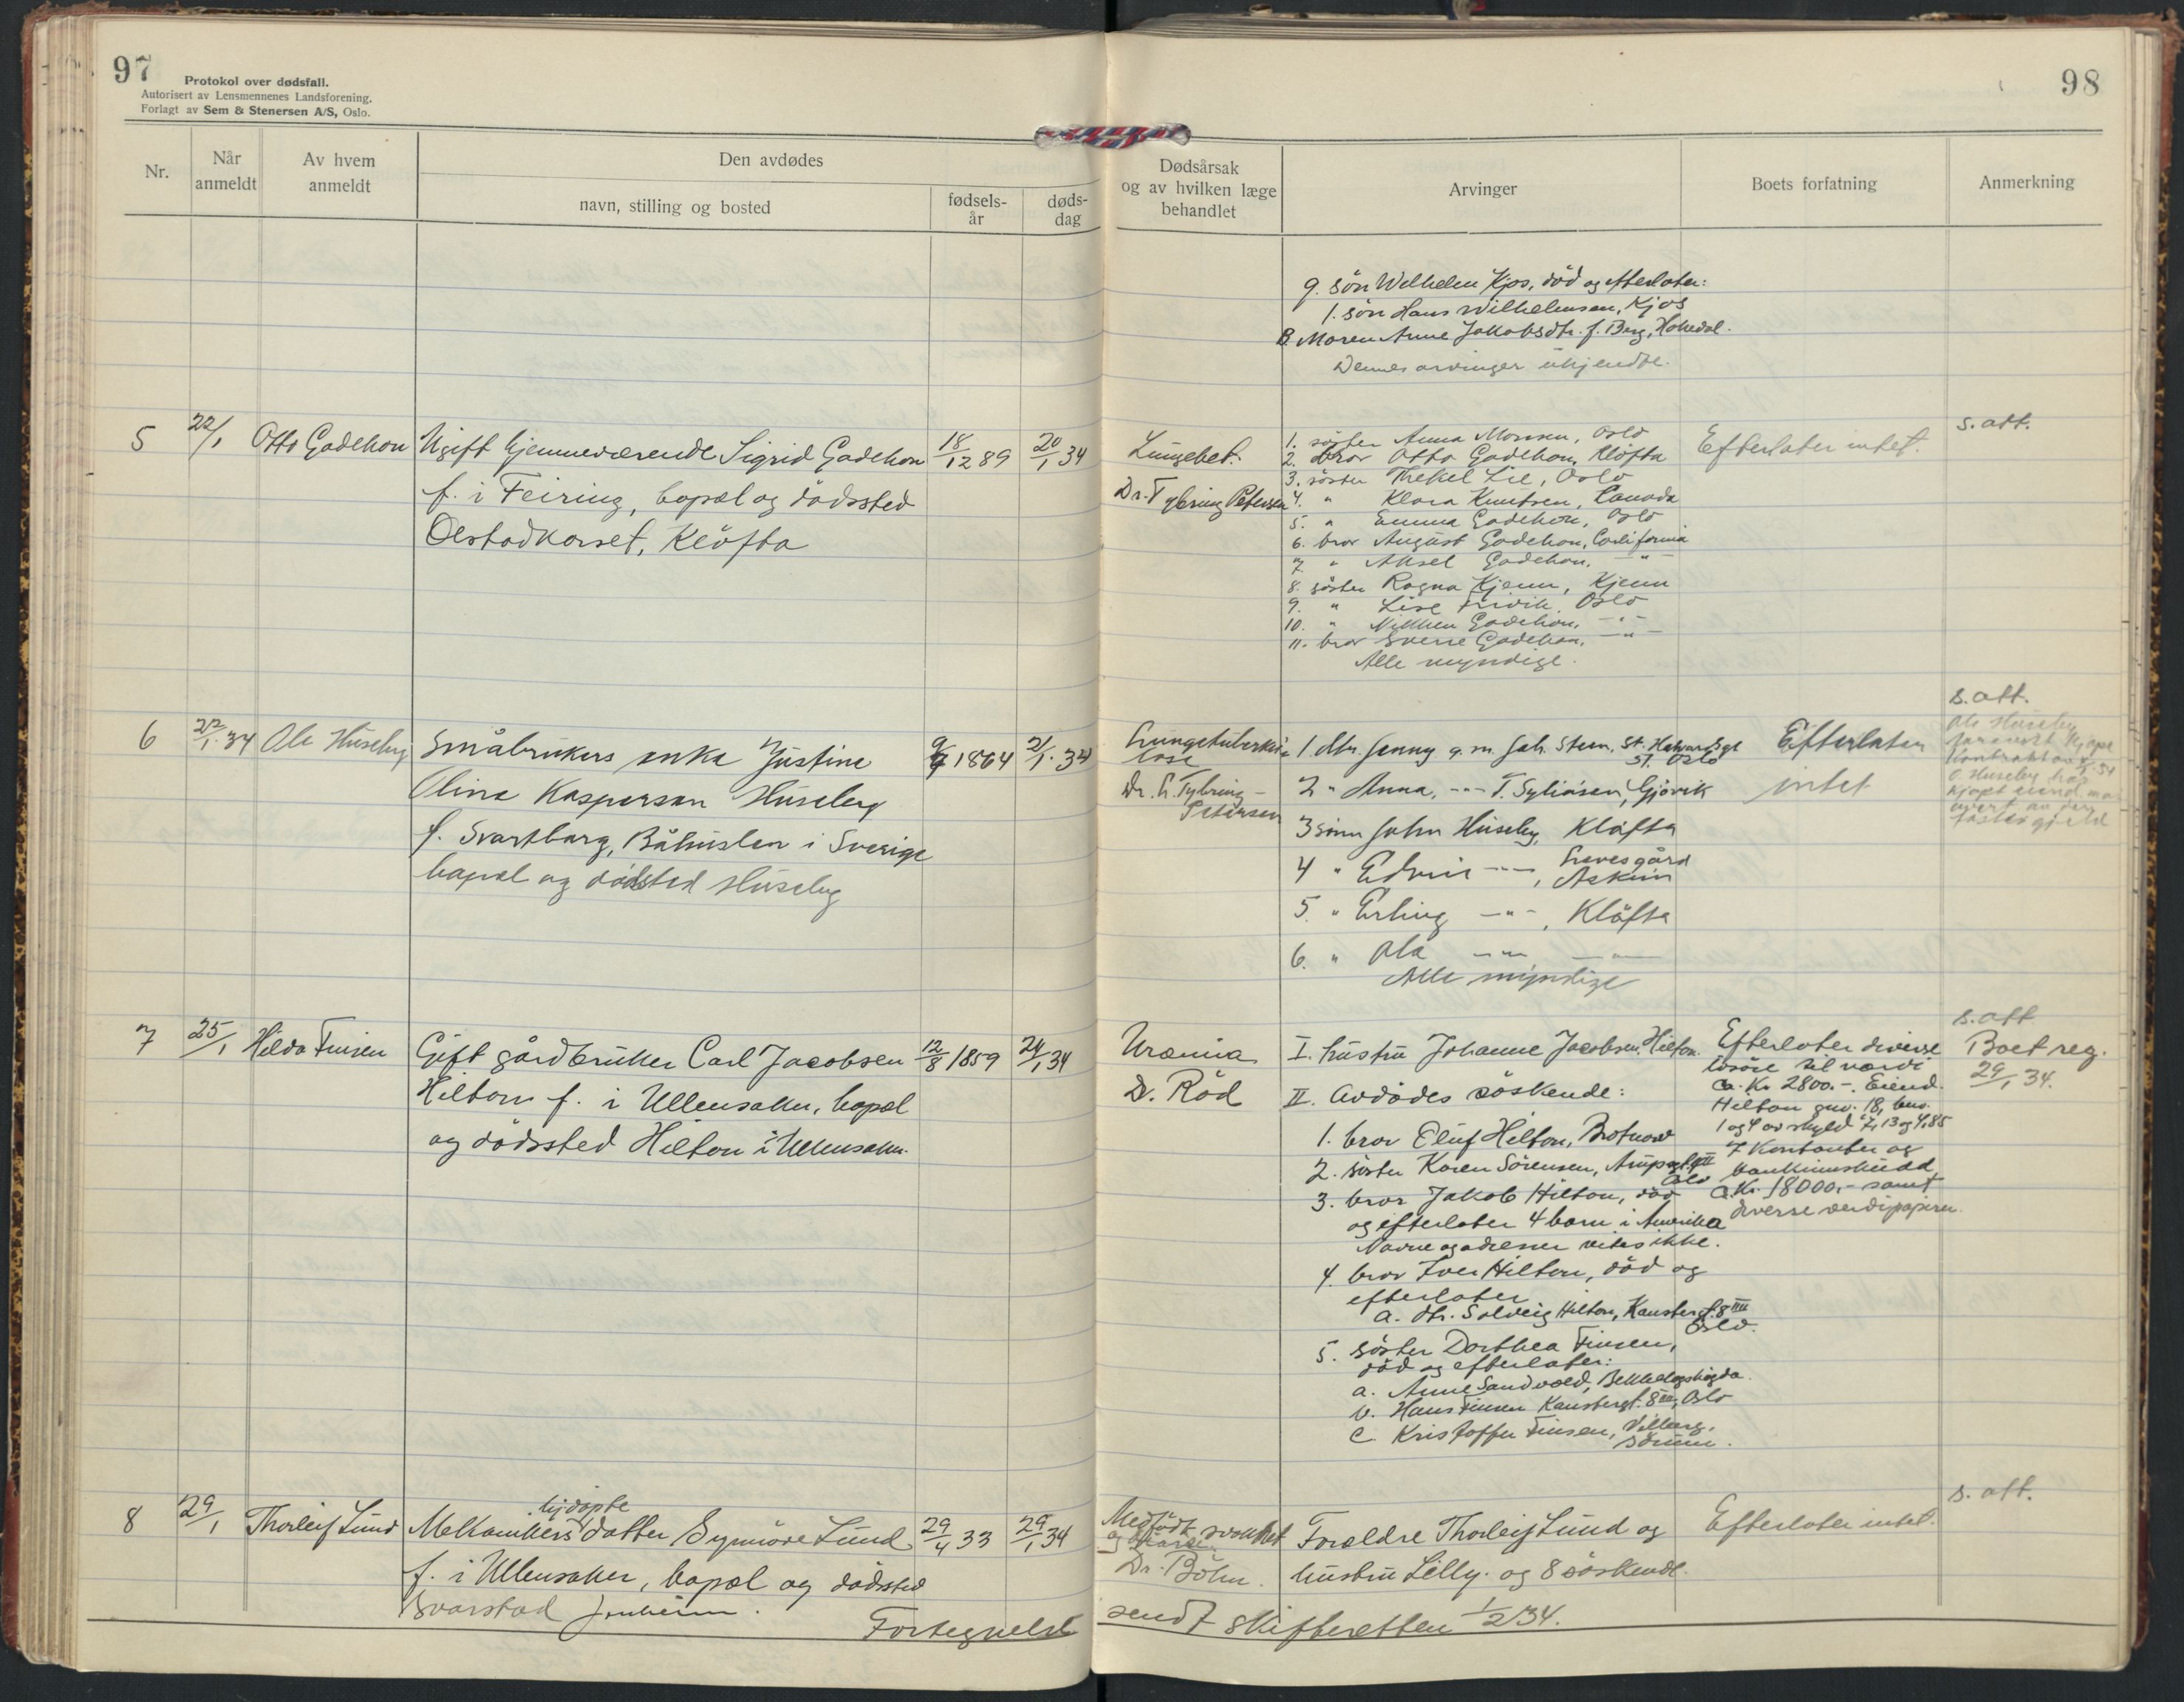 97
Protokol over dødsfall.
Autorisert av Lensmennenes Landsforening.
Forlagt av Sem & Stenersen A/S, Oslo.
98
Nr.
Når anmeldt
Av hvem anmeldt
Den avdødes
navn, stilling og bosted
fødsels-år
døds-dag
Dødsårsak og av hvilken læge behandlet
Arvinger
Boets forfatning
Anmerkning
9. sön Wilhelm Kjos, död og efterlater:
1. sön Hans Wilhelmsen, Kjos
B. Maren Anne Jakobsdtr. f. Berg,
Dennes arvinger ukjendte.
5
22/1
Otto Gadehon
Ugift hjemmeværende Sigrid Gadehon
18/12 89
20/1 34
f. i Feiring, bopæl og dödssted
Olstadkorset, Klöfta
Lungebet.
Dr. Tybring Petersen
1. söster Anna Monsen, Oslo
2. bror Otto Gadehon, Klöfta
3. söster Thekel Lie, Oslo
4. " Klara Knutsen, Canada
5. " Emma Gadehon, Oslo
6. bror August Gadehon, California
7. " Aksel Gadehon, — " —
8. söster Ragna Kjenn, Kjenn
9. " Lise Oslo
10. " Gadehon, — " —
11. bror Sverre Gadehon, — " —
Alle myndige.
Efterlater intet.
s. att.
6
22/1. 34
Ole Huseby
Småbrukers enke Justine
9/9 1864
21/1. 34
Oline Kaspersen Huseby
f. Svarteborg, Båhuslen i Sverige
bopæl og dödsted Huseby
Lungetuberku-
lose
Dr. C. Tybring-
Petersen
1 dtr. Jenny g. m. Joh. Steen, St. Halvardsgt
51, Oslo
2 " Anna, -"- T. Syliasen, Gjövik
3 sönn John Huseby, Klöfta
4 " Edvin -"-, Grevesgård
Askim
5. " Erling -"-, Klöfta
6. " Ole -"- -"-
Alle myndige
Efterlater
intet
s. att.
Ole Huseby
O. Huseby har
7
25/1
Hilda Finsen
Gift gårdbruker Carl Jacobsen
12/8 1859
24/1 34
Hilton f. i Ullensaker, bopæl
og dödssted Hilton i Ullensaker.
Uræmia
D. Röd
I. hustru Johanne Jacobsen, Hilton.
II. Avdödes söskende:
1. bror Oluf Hilton,
2. söster Karen Sörensen,
Oslo
3. bror Jakob Hilton, död
og efterlater 4 barn i Amerika
Navne og adresser vites ikke.
4. bror Iver Hilton, död og
efterlater
a. dtr. Solveig Hilton, Kansbergt. 8 III
Oslo.
5. söster Dorthea Finsen,
död og efterlater:
a. Anne Sandvold, Bekkelagshögda.
b. Hans Finsen Kansbergt. 8 III, Oslo
c. Kristoffer Finsen, Vilberg,
Sörum.
Efterlater diverse
lösöre til værdi
ca. Kr. 2800.-. Eiend.
Hilton gnr. 18, bnr.
1 og 4 av skyld 7,13 og 4,85
7 Kontanter og
bankinnskudd
ca. Kr. 18000,- samt
diverse verdipapirer.
s. att
Boet reg.
29/1 34.
8
29/1
Thorleif Lund
hj.döpte
Mekanikers datter Synnöve Lund
29/4 33
29/1 34
f. i Ullensaker, bopæl og dödssted
Svarstad Jessheim.
Medfödt svakhet
og
Dr. Böhn.
Foreldre Thorleif Lund og
hustru Lilly. og 8 söskende.
Efterlater intet.
s. att.
Fortegnelse
sendt skifteretten 1/2 34.